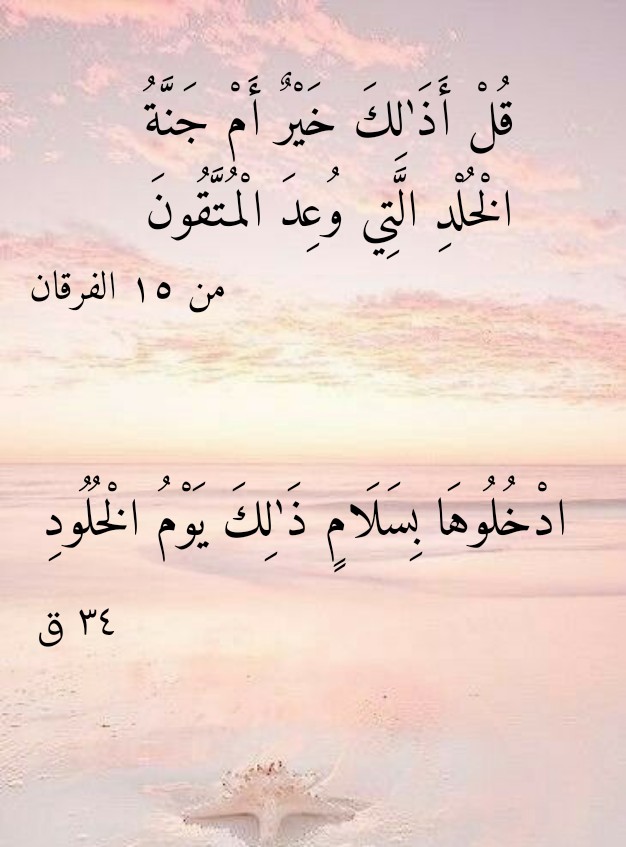 قُلْ أَذَٰلِكَ خَيْرٌ أَمْ جَنَّةُ
الْخُلْدِ الَّتِي وُعِدَ الْمُتَّقُونَ
من ١٥ الفرقان
ادْخُلُوهَا بِسَلَامٍ ذَٰلِكَ يَوْمُ الْخُلُودِ
٣٤ ق